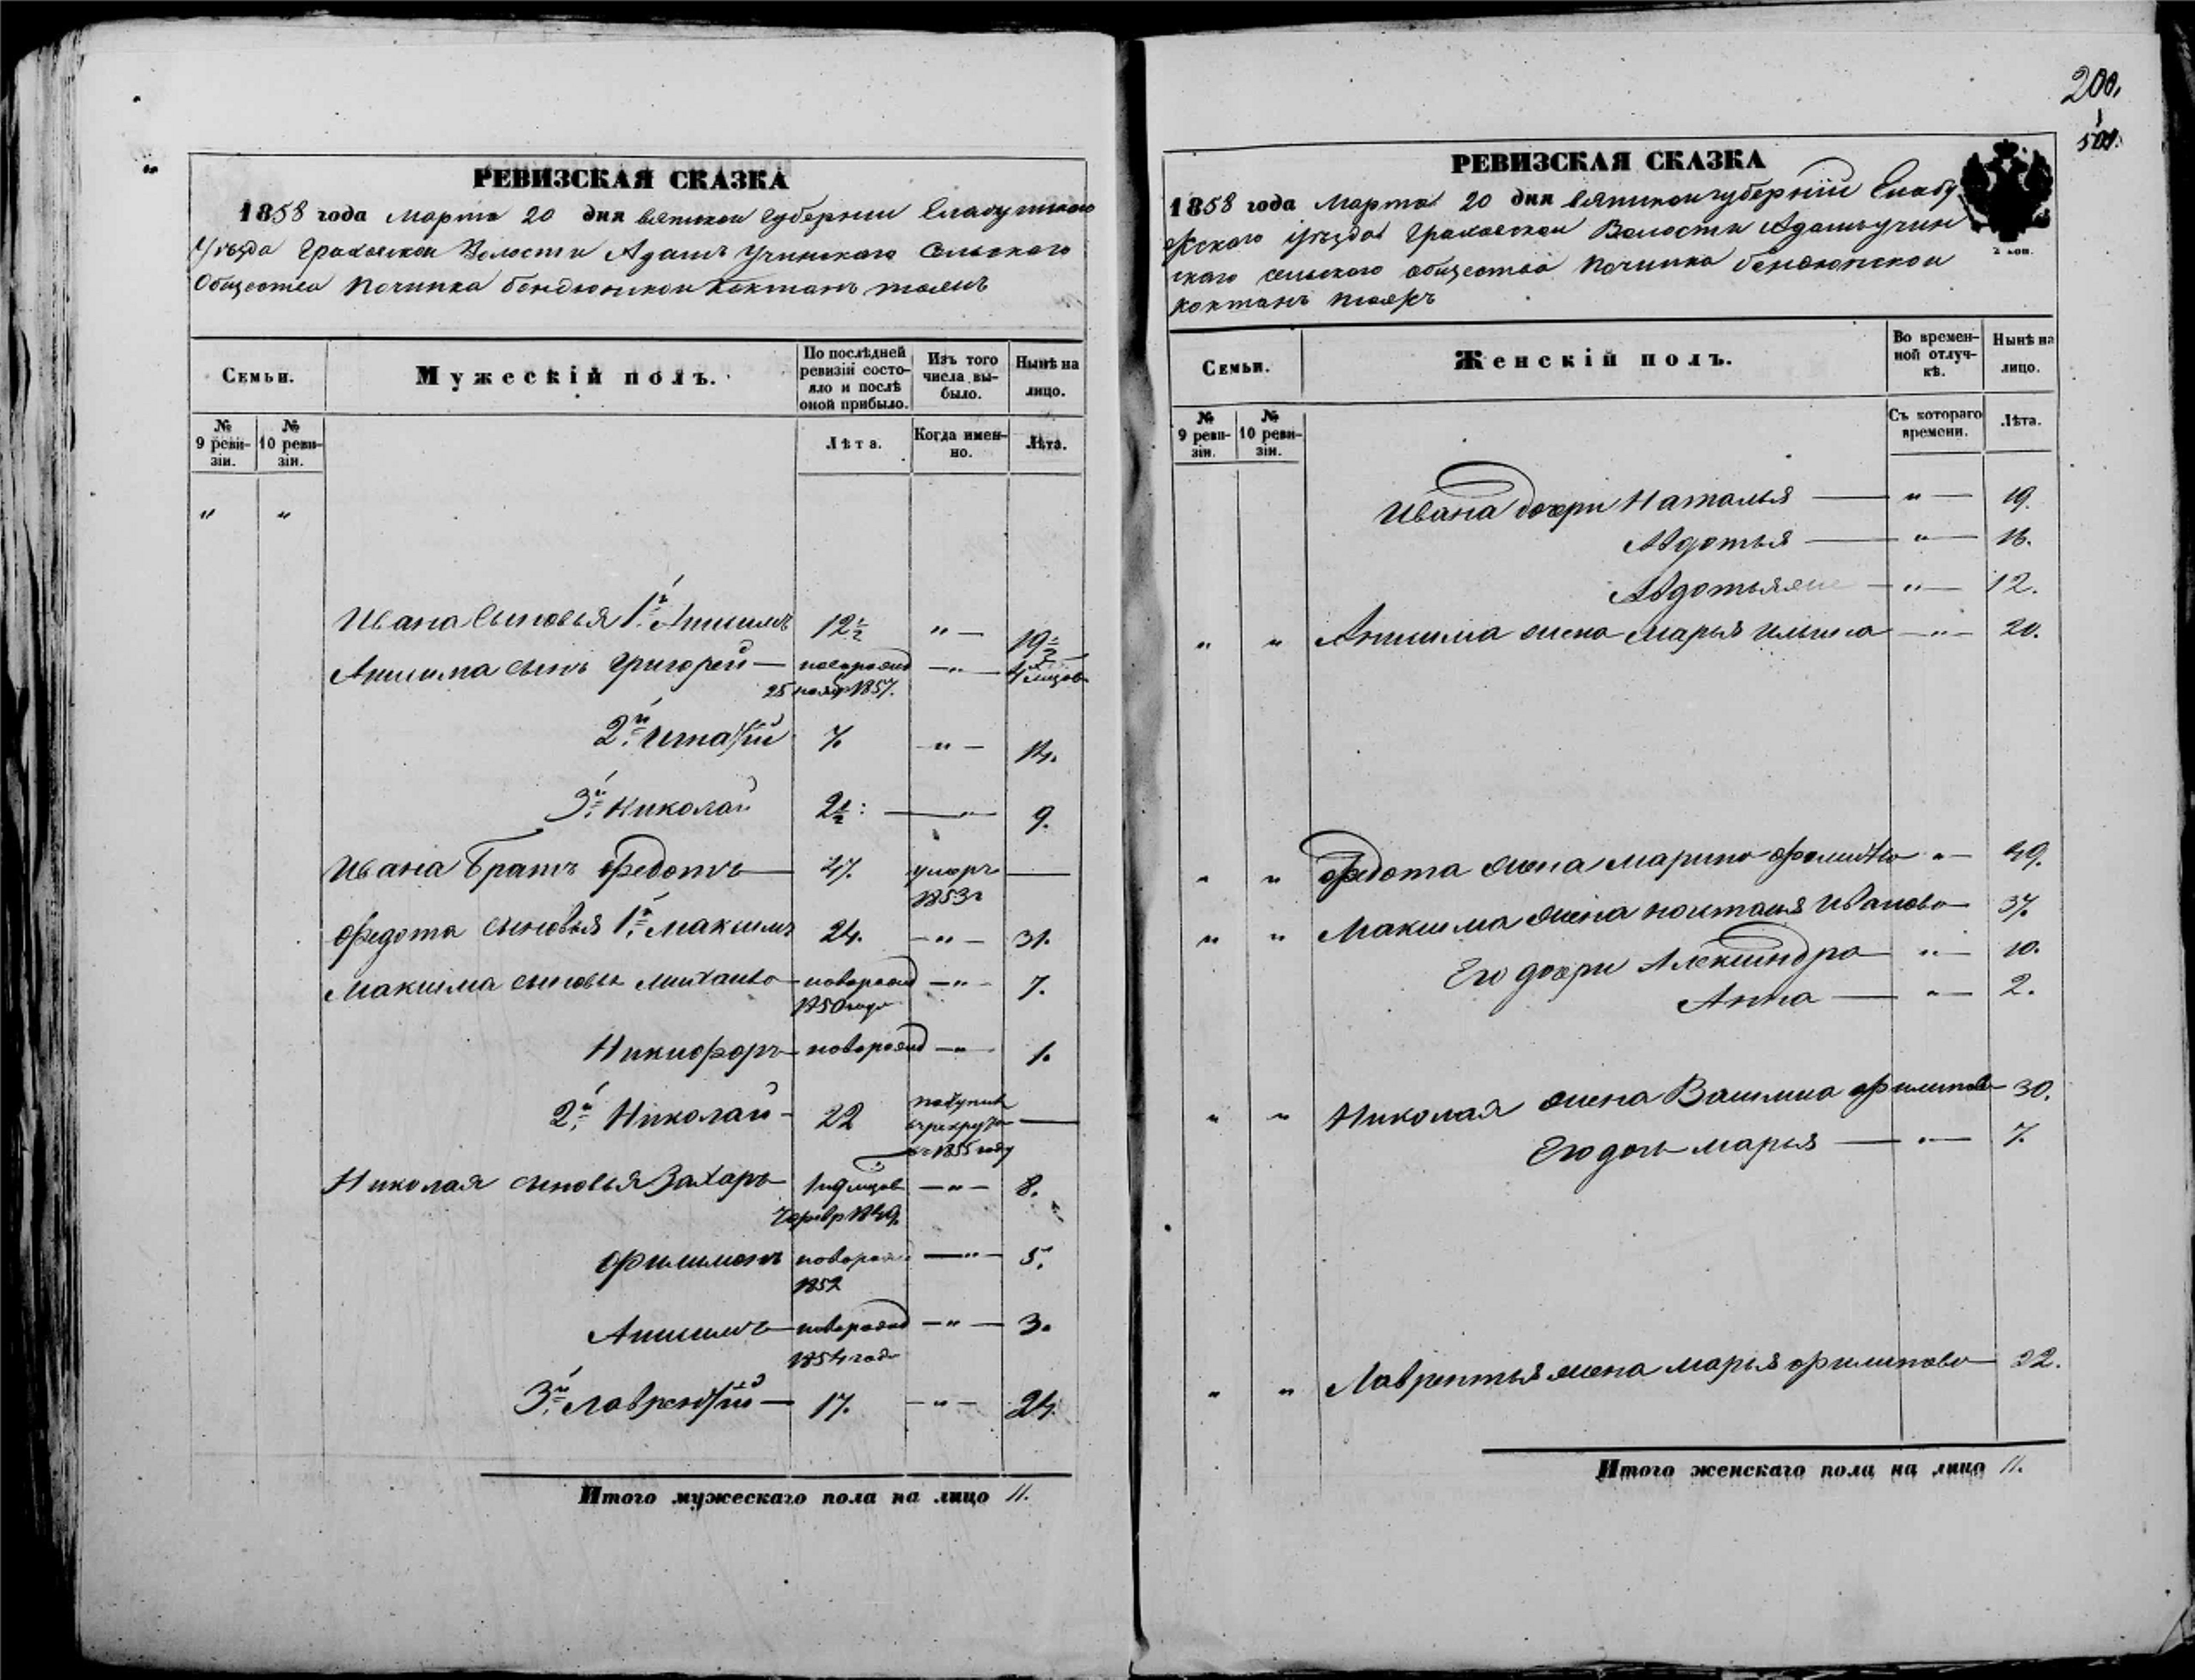 200.
501.
РЕВИЗСКАЯ СКАЗКА
1858 года Марта 20 дня Вятской Губернии Елабужскаго
Уѣзда Граховской Волости Адамъ Учинскаго Сельскаго
Общества Починка Бендюжской Коктанъ
Семьи.
Мужескій полъ.
По послѣдней ревизіи состояло и послѣ оной прибыло.
Изъ того числа выбыло.
Нынѣ на лицо.
№ 9 ревизіи.
№ 10 ревизіи.
Лѣта.
Когда именно.
Лѣта.
" "
Ивана Сыновья 1й Анисимъ 12½ " — 19½
Анисима сынъ Григорей — поворожд — " — 4 мѣцов
25 нояб 1857.
2й Игнатій 7. — " — 14.
3й Николай 2½: — " — 9.
Ивана Братъ Федотъ — 47. умеръ —
1853г
Федота сыновья 1й Максимъ 24. — " — 31.
Максима сыновья Михаило — новорожд — " — 7.
1850 года
Никифоръ — новорожд — " — 1.
2й Николай — 22 поступил —
в рекруты
въ 1855 году
Николая сыновья Захаръ 1 и 9 мѣцов — " — 8.
7 февр 1849.
Филимонъ новорож — " — 5.
1852
Анисимъ — новорожд — " — 3.
1854 года
3й Лаврентій — 17. — " — 24.
Итого мужескаго пола на лицо 11.
РЕВИЗСКАЯ СКАЗКА
1858 года Марта 20 дня Вятской губерніи Елабу
жскаго Уѣзда Граховской Волости Адамъучин
скаго сельскаго общества Починка Бендюжской
Коктанъ
2 коп.
Семьи.
Женскій полъ.
Во временной отлучкѣ.
Нынѣ на лицо.
№ 9 ревизіи.
№ 10 ревизіи.
Съ котораго времени.
Лѣта.
Ивана дочери Наталья — " — 19.
Авдотья — " — 16.
Авдотья же — " — 12.
" " Анисима жена Марья Ильина — " — 20.
" " Федота жена Марина " — 49.
" " Максима жена Настасья Иванова — 37.
Его дочери Александра — " — 10.
Анна — " — 2.
" " Николая жена Василиса Филипова — 30.
Его дочь Марья — " — 7.
" " Лаврентья жена Марья Филипова — 22.
Итого женскаго пола на лицо 11.